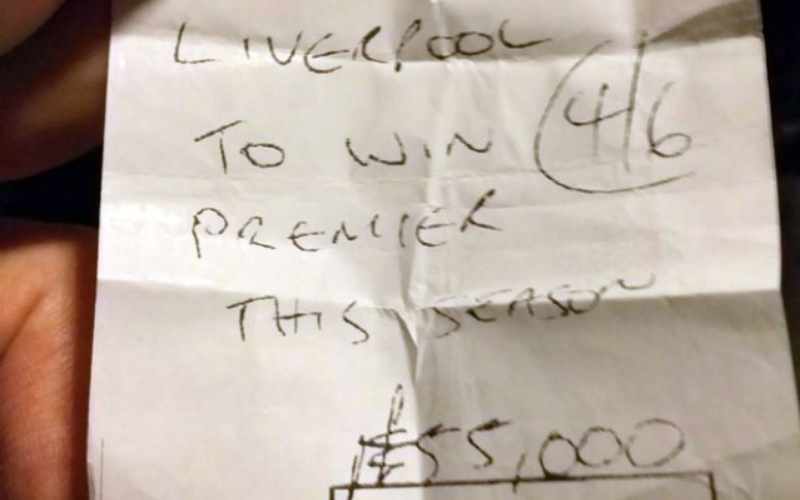 LIVERPOOL
TO WIN 4/6
PREMIER
THIS SEASON
£55,000